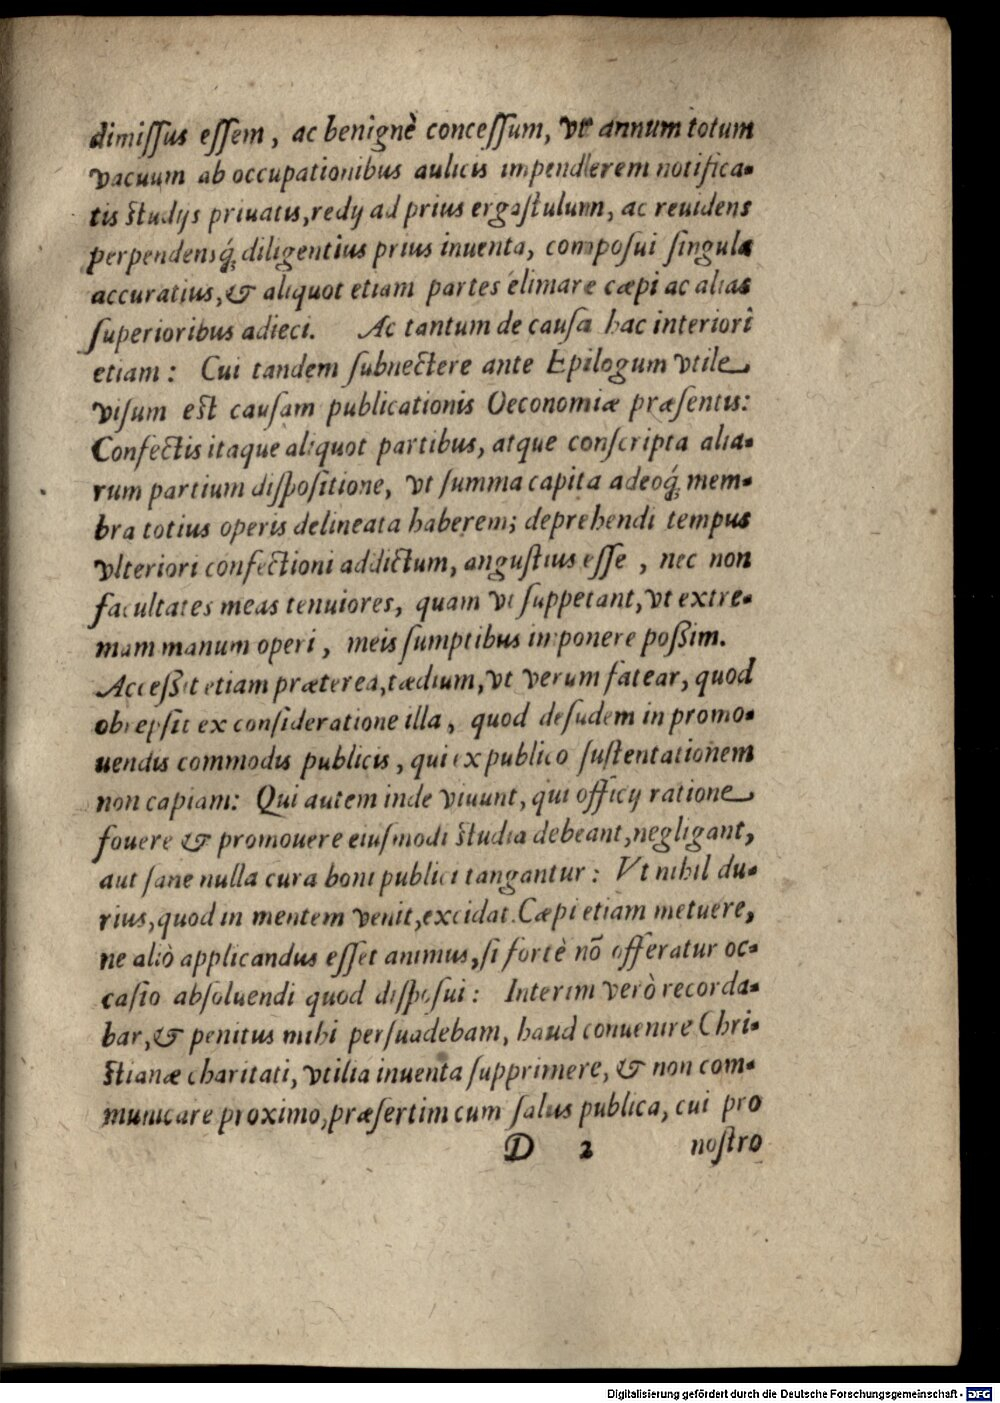 dimiſſus eſſem, ac benignè conceſſum, vt annum totum
vacuum ab occupationibus aulicis impenderem notifica-
tis ſtudijs priuatis, redij ad prius ergaſtulum, ac reuidens
perpendensq́; diligentius prius inuenta, compoſui ſingula
accuratius, & aliquot etiam partes elimare cæpi ac alias
ſuperioribus adieci. Ac tantum de cauſa hac interiori
etiam: Cui tandem ſubnectere ante Epilogum vtile
viſum eſt cauſam publicationis Oeconomiæ præſentis:
Confectis itaque aliquot partibus, atque conſcripta alia-
rum partium diſpoſitione, vt ſumma capita adeoq́; mem-
bra totius operis delineata haberem; deprehendi tempus
vlteriori confectioni addictum, anguſtius eſſe, nec non
facultates meas tenuiores, quam vt ſuppetant, vt extre-
mam manum operi, meis ſumptibus imponere poßim.
Acceßit etiam præterea, tædium, vt verum fatear, quod
obrepſit ex conſideratione illa, quod deſudem in promo-
uendis commodis publicis, qui ex publico ſuſtentationem
non capiam: Qui autem inde viuunt, qui officij ratione
fouere & promouere eiuſmodi ſtudia debeant, negligant,
aut ſane nulla cura boni publici tangantur: Vt nihil du-
rius, quod in mentem venit, excidat. Cæpi etiam metuere,
ne aliò applicandus eſſet animus, ſi fortè nõ offeratur oc-
caſio abſoluendi quod diſpoſui: Interim verò recorda-
bar, & penitus mihi perſuadebam, haud conuenire Chri-
ſtianæ charitati, vtilia inuenta ſupprimere, & non com-
municare proximo, præſertim cum ſalus publica, cui pro
D 2 noſtro
Digitalisierung gefördert durch die Deutsche Forschungsgemeinschaft - DFG